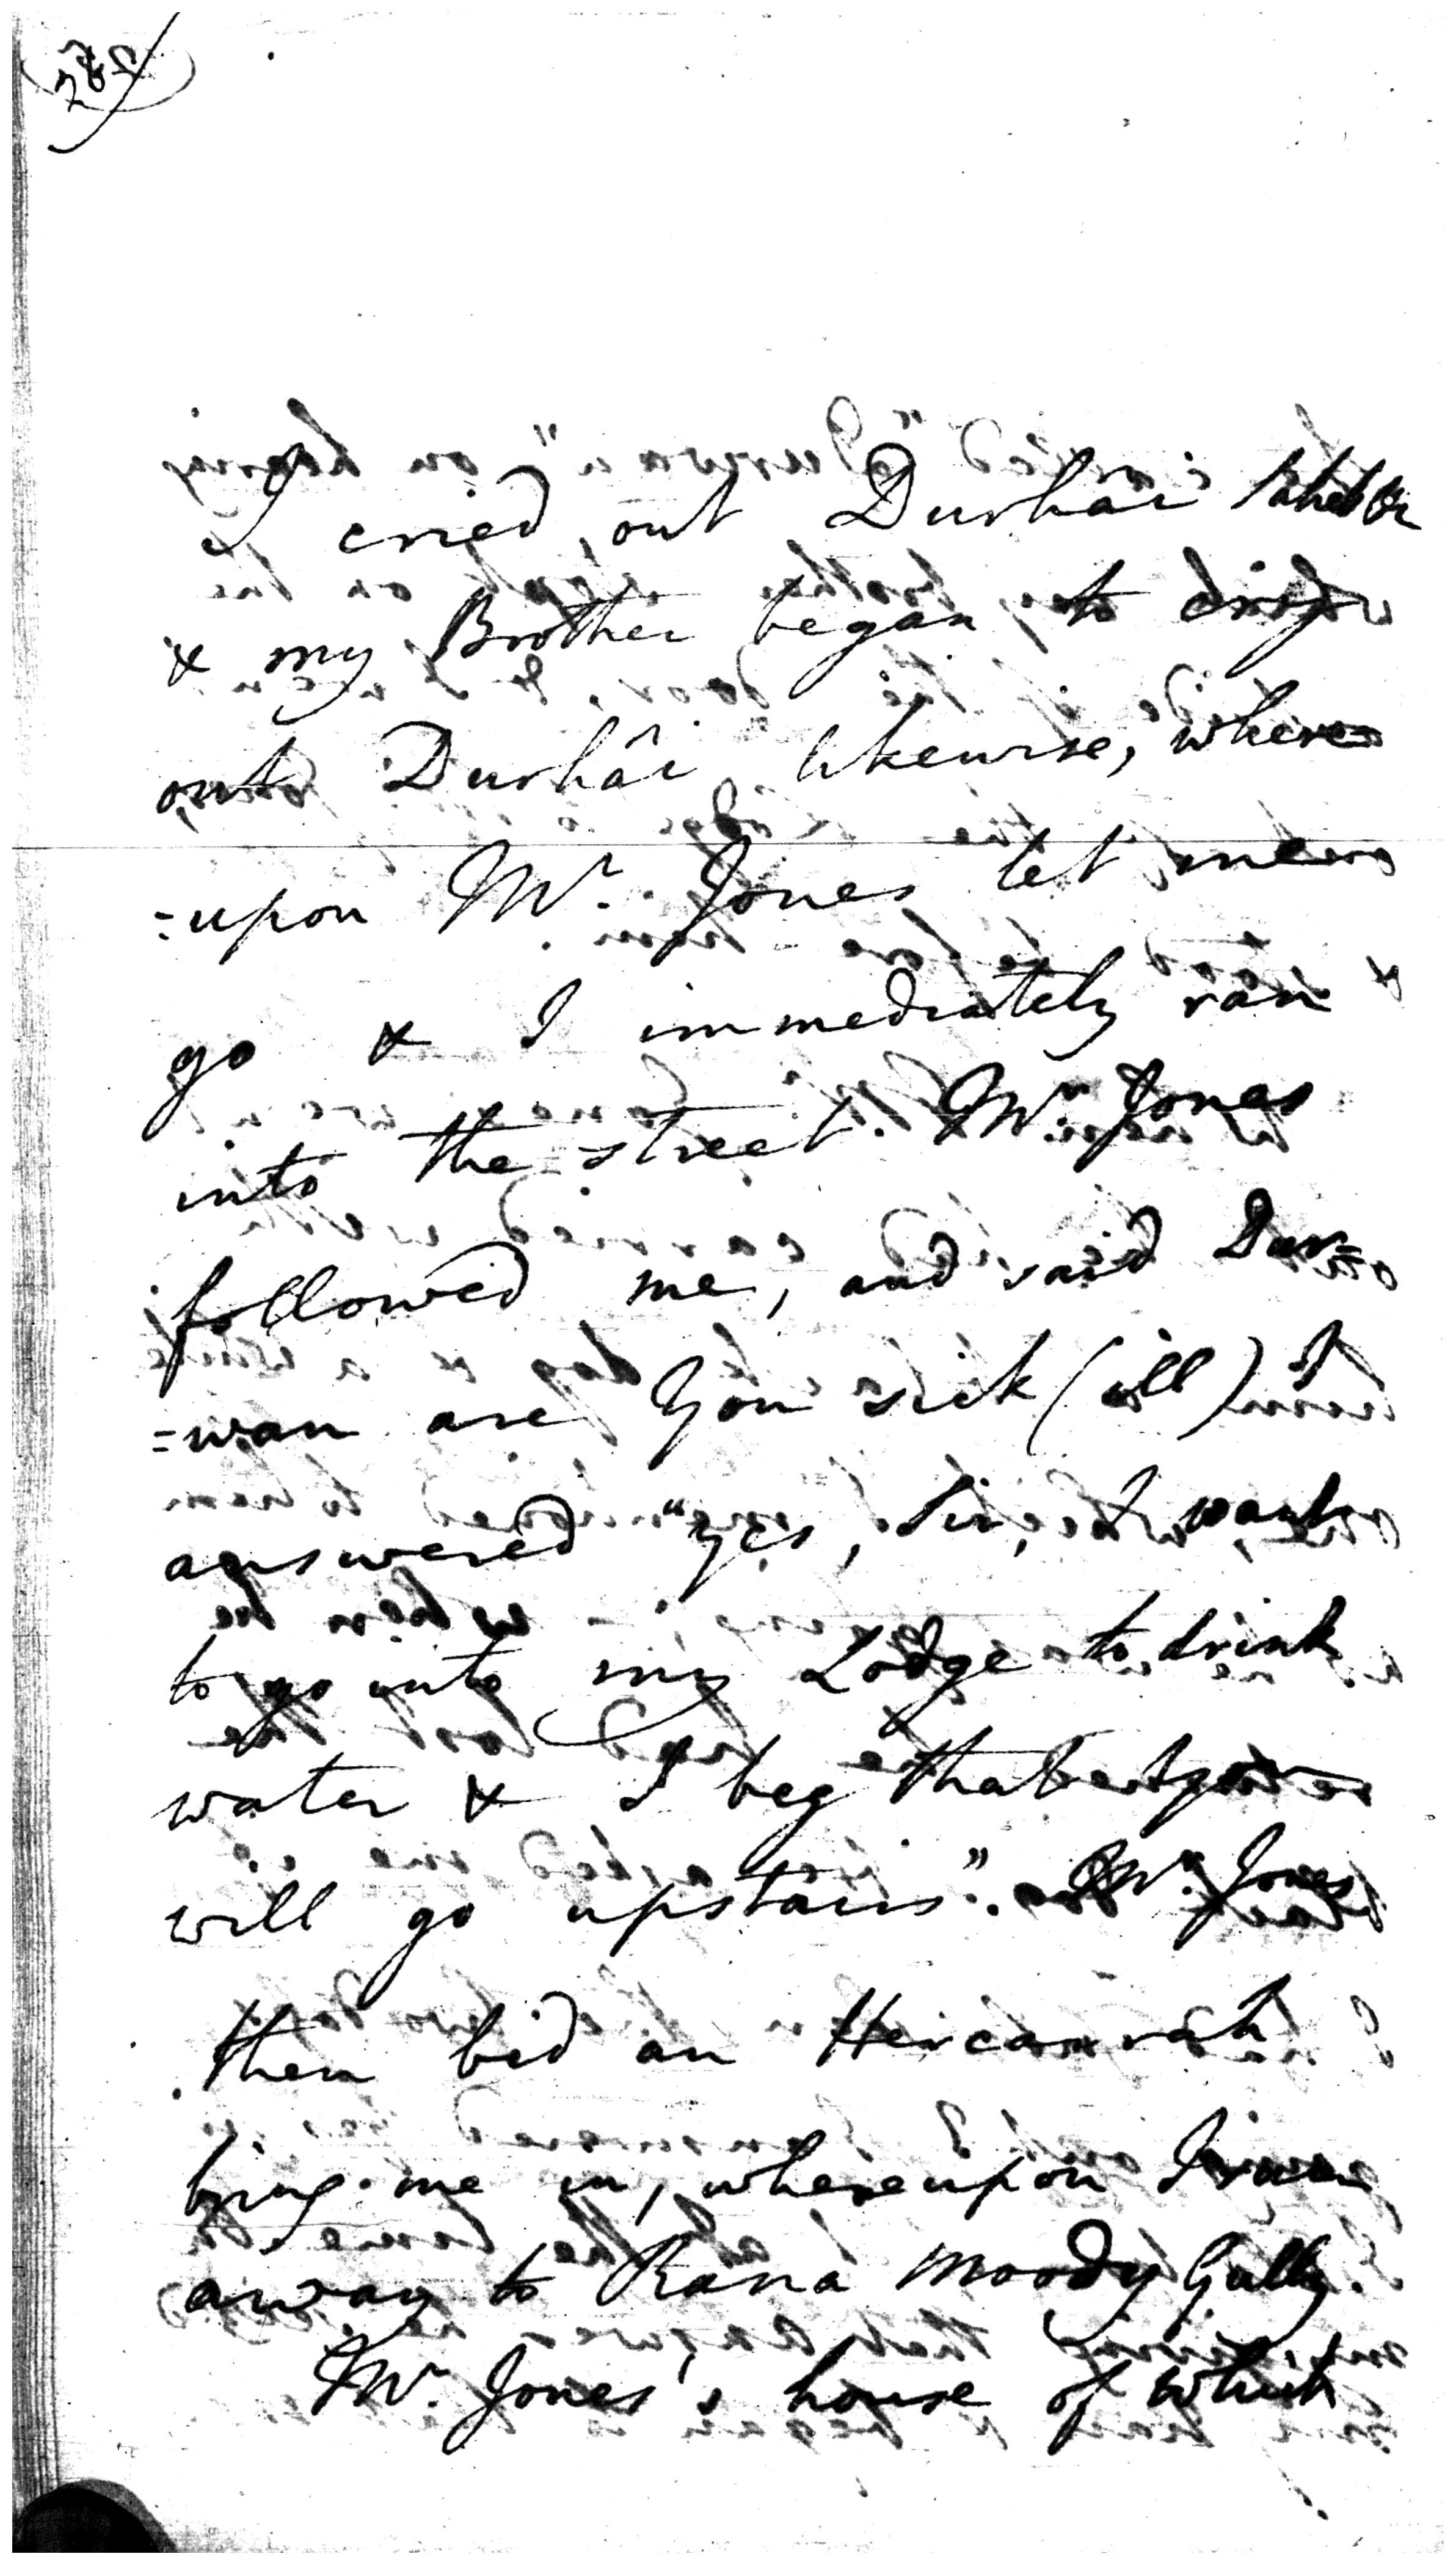 I cried out Durhâi Saheb &
& my Brother began to cry
out Durhâi likewise, where
=upon Mr. Jones let me
go & I immediately ran
into the street. Mr. Jones
followed me, and said Dur=
=wan are You sick (ill) I
answered "Yes, Sir, I want
to go into my Lodge to drink
water & I beg that you
will go upstairs". Mr. Jones
then bid an Hircarrah
bring me in, whereupon I ran
away to Rana Moody Gully.
Mr. Jones's house of which